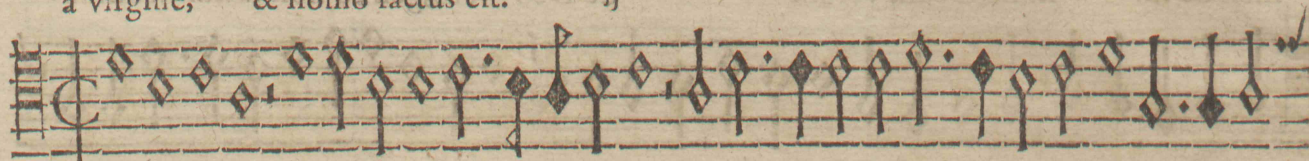 a virgine, & homo factus est. ij